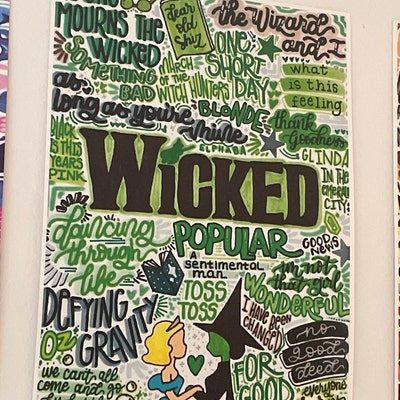 MOURNS THE
WICKED
dear
old
shiz
the Wizard
and I
SOMETHING
BAD
MARCH
OF THE
WITCH HUNTERS
ONE
SHORT
DAY
what
is this
feeling
as
long as you're
mine
BLONDE
ELPHABA
thank
goodness
BLACK
IS THIS
YEARS
PINK
WICKED
GLINDA
IN THE
EMERALD
CITY
dancing
through
life
POPULAR
A
sentimental
man
GOOD
NEWS
i'm not
that girl
TOSS
TOSS
WONDERFUL
DEFYING
GRAVITY
I HAVE BEEN
CHANGED
no
good
deed
OZ
we can't all
come and go
FOR
GOOD
everyone